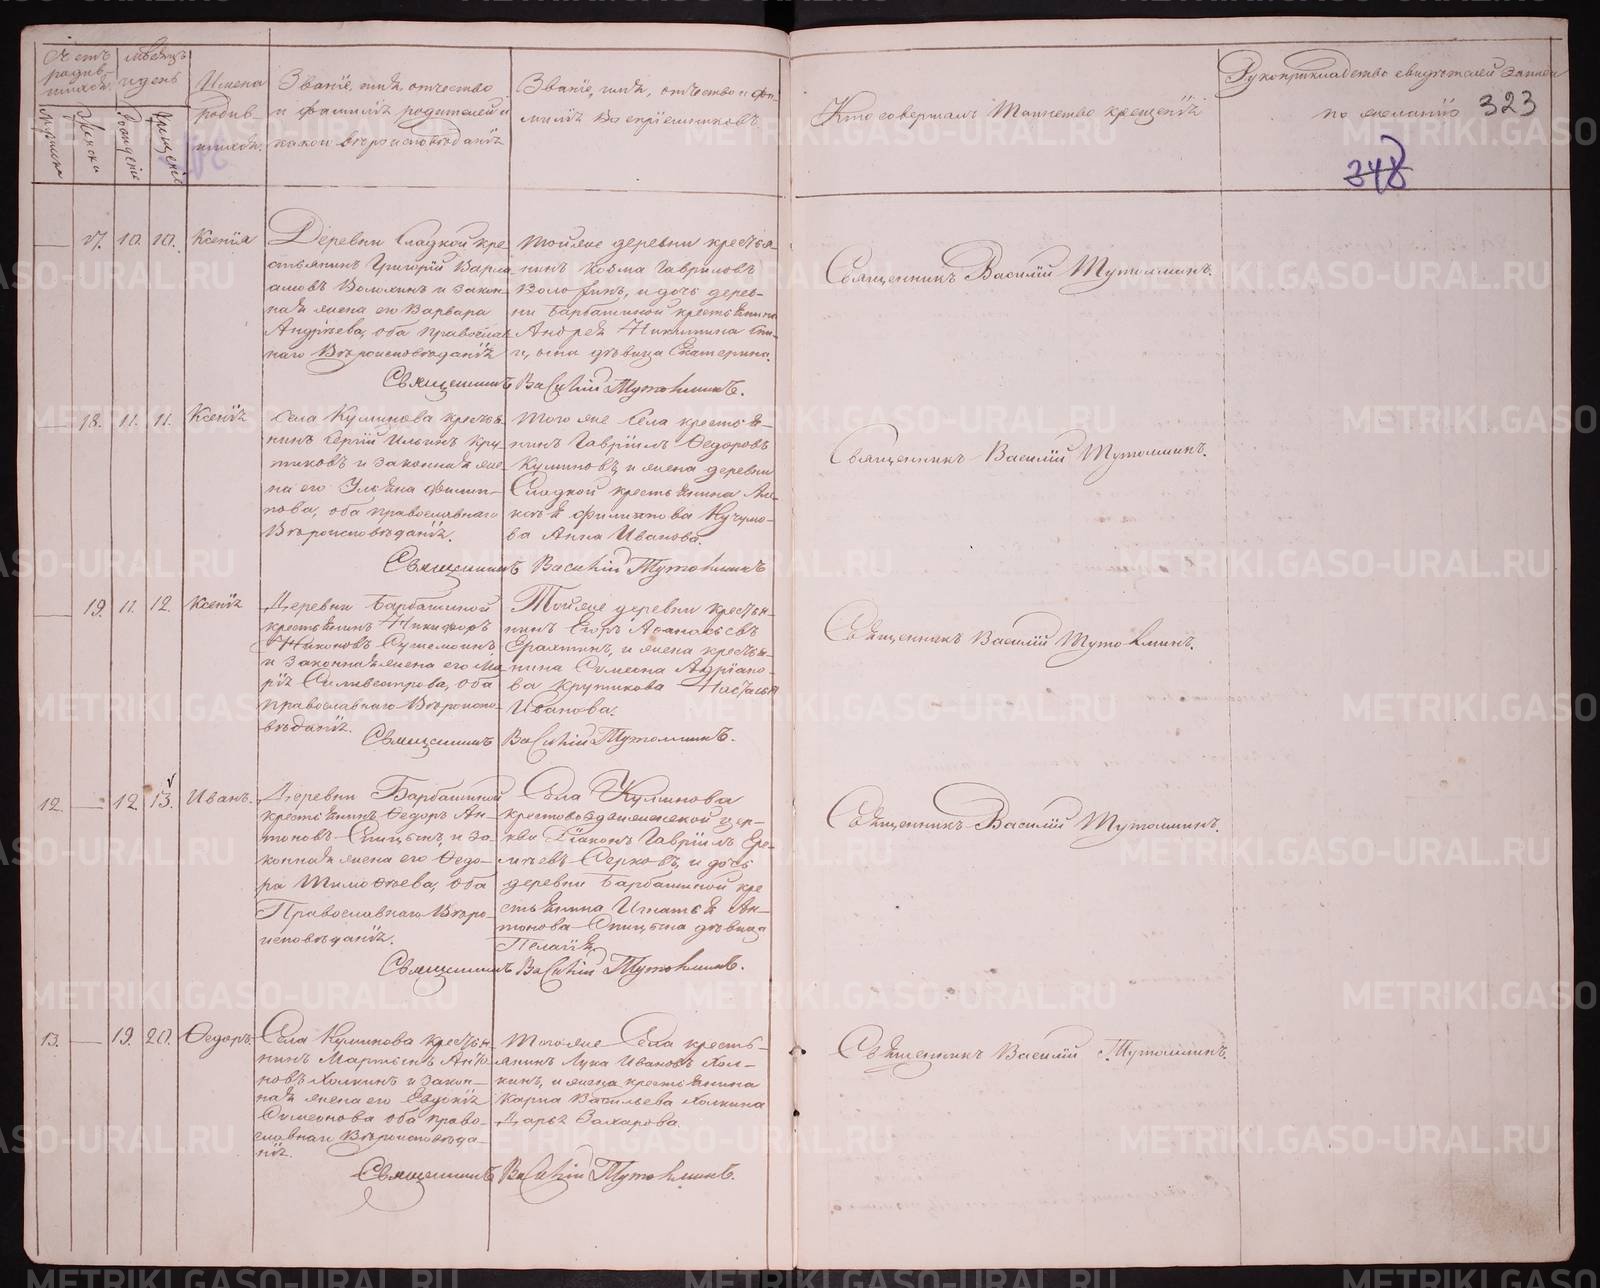 Счетъ
родив-
шихся.
Мѣсяцъ
и день
Мужеска
Женска
Рожденіе
Крещеніе
Имена
родив-
шихся.
Званіе, имя, отчество
и фамилія родителей и
какой вѣроисповѣданія
Званіе, имя, отчество и фа-
милія воспріемниковъ.
Кто совершалъ Таинство крещенія
Рукоприкладство свидѣтелей записи
по желанію
323
348
17. 10. 10. Ксенія
Деревни Сладкой кре-
стьянинъ Григорій Варла-
амовъ Волохинъ и закон-
ная жена его Варвара
Андрѣева, оба православ-
наго Вѣроисповѣданія
Тойже деревни крестья-
нинъ Козма Гавриловъ
Волохинъ, и дочь дерев-
ни Барбашиной крестьянина
Андрея Никитина
дѣвица Екатерина.
Священникъ Василій Тутолминъ.
Священникъ Василій Тутолминъ.
18. 11. 11. Ксенія
Села Куминова крестья-
нинъ Сергій Ильинъ Кру-
тиковъ и законная же-
на его Ульяна Филип-
пова, оба православнаго
Вѣроисповѣданія.
Того же Села крестья-
нинъ Гавріилъ Ѳедоровъ
Куминовъ, и жена деревни
Сладкой крестьянина Але-
ксѣя Филиппова Кучумо-
ва Анна Иванова.
Священникъ Василій Тутолминъ
Священникъ Василій Тутолминъ.
19. 11. 12. Ксенія
Деревни Барбашиной
крестьянинъ Никифоръ
Никоновъ
и законная жена его Ма-
рія Силивестрова, оба
православнаго Вѣроиспо-
вѣданія.
Тойже деревни крестья-
нинъ Егоръ Аѳанасьевъ
и жена крестья-
нина Симеона Андріано-
ва Крутикова Настасья
Иванова.
Священникъ Василій Тутолминъ.
Священникъ Василій Тутолминъ.
12. 12. 13. Иванъ.
Деревни Барбашиной
крестьянинъ Ѳедоръ Ан-
тоновъ Спицынъ, и за-
конная жена его Ѳедо-
ра Тимоѳеева, оба
Православнаго Вѣро-
исповѣданія.
Села Куминова
крестовоздвиженской цер-
кви Діаконъ Гавріилъ Ере-
мѣевъ Серковъ, и дочь
деревни Барбашиной кре
стьянина Игнатья Ан-
тонова Спицына дѣвица
Пелагія.
Священникъ Василій Тутолминъ.
Священникъ Василій Тутолминъ.
13. 19. 20. Ѳедоръ.
Села Куминова крестья-
нинъ Мартынъ Анто-
новъ Холкинъ и закон-
ная жена его Евдокія
Симеонова оба право-
славнаго Вѣроисповѣда-
нія.
Тогоже Села кресть-
янинъ Лука Ивановъ Хол-
кинъ, и жена крестьянина
Карпа Васильева Холкина
Дарья Захарова.
Священникъ Василій Тутолминъ.
Священникъ Василій Тутолминъ.